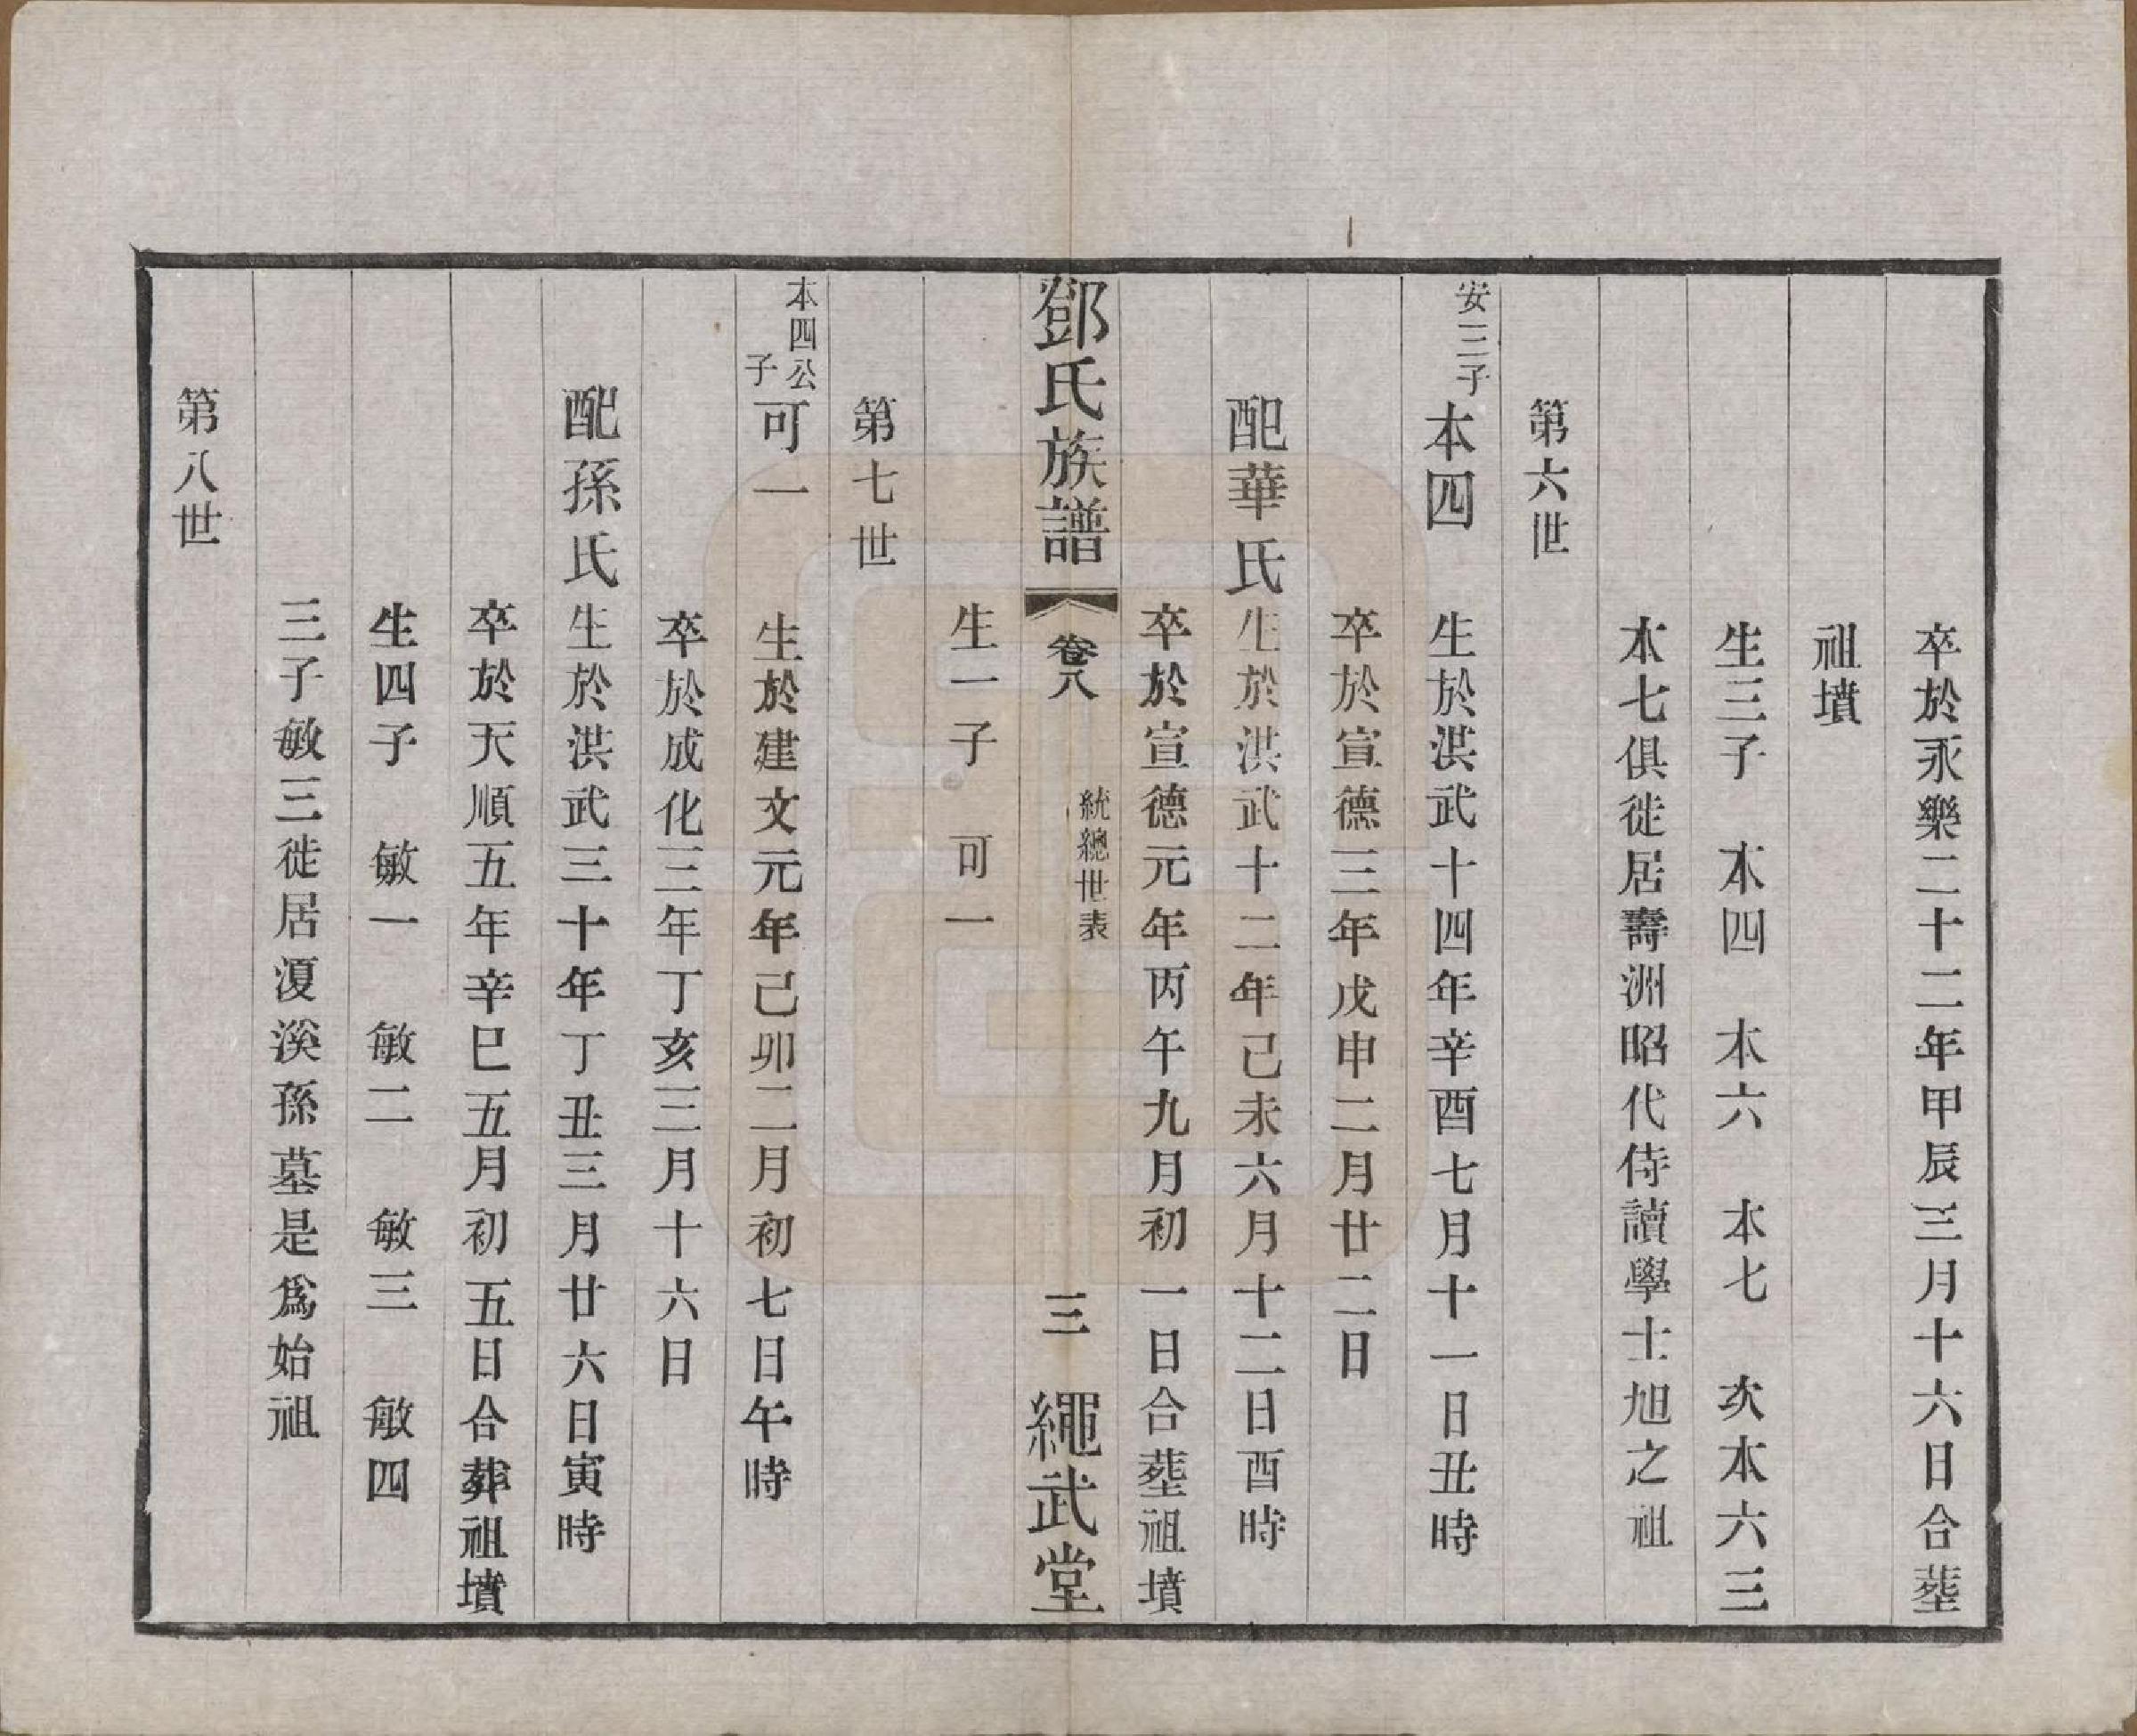 卒於永樂二十二年甲辰三月十六日合塟
祖墳
生三子　本四　本六　本七　次本六三
本七俱徙居壽洲昭代侍讀學士旭之祖
第六世
安三子　本四　生於洪武十四年辛酉七月十一日丑時
卒於宣德三年戊申二月廿二日
配華氏　生於洪武十二年己未六月十二日酉時
卒於宣德元年丙午九月初一日合塟祖墳
鄧氏族譜　卷八　統總世表　三　繩武堂
生一子　可一
第七世
本四公子　可一　生於建文元年己卯二月初七日午時
卒於成化三年丁亥三月十六日
配孫氏　生於洪武三十年丁丑三月廿六日寅時
卒於天順五年辛巳五月初五日合葬祖墳
生四子　敏一　敏二　敏三　敏四
三子敏三徙居溭溪孫墓是爲始祖
第八世